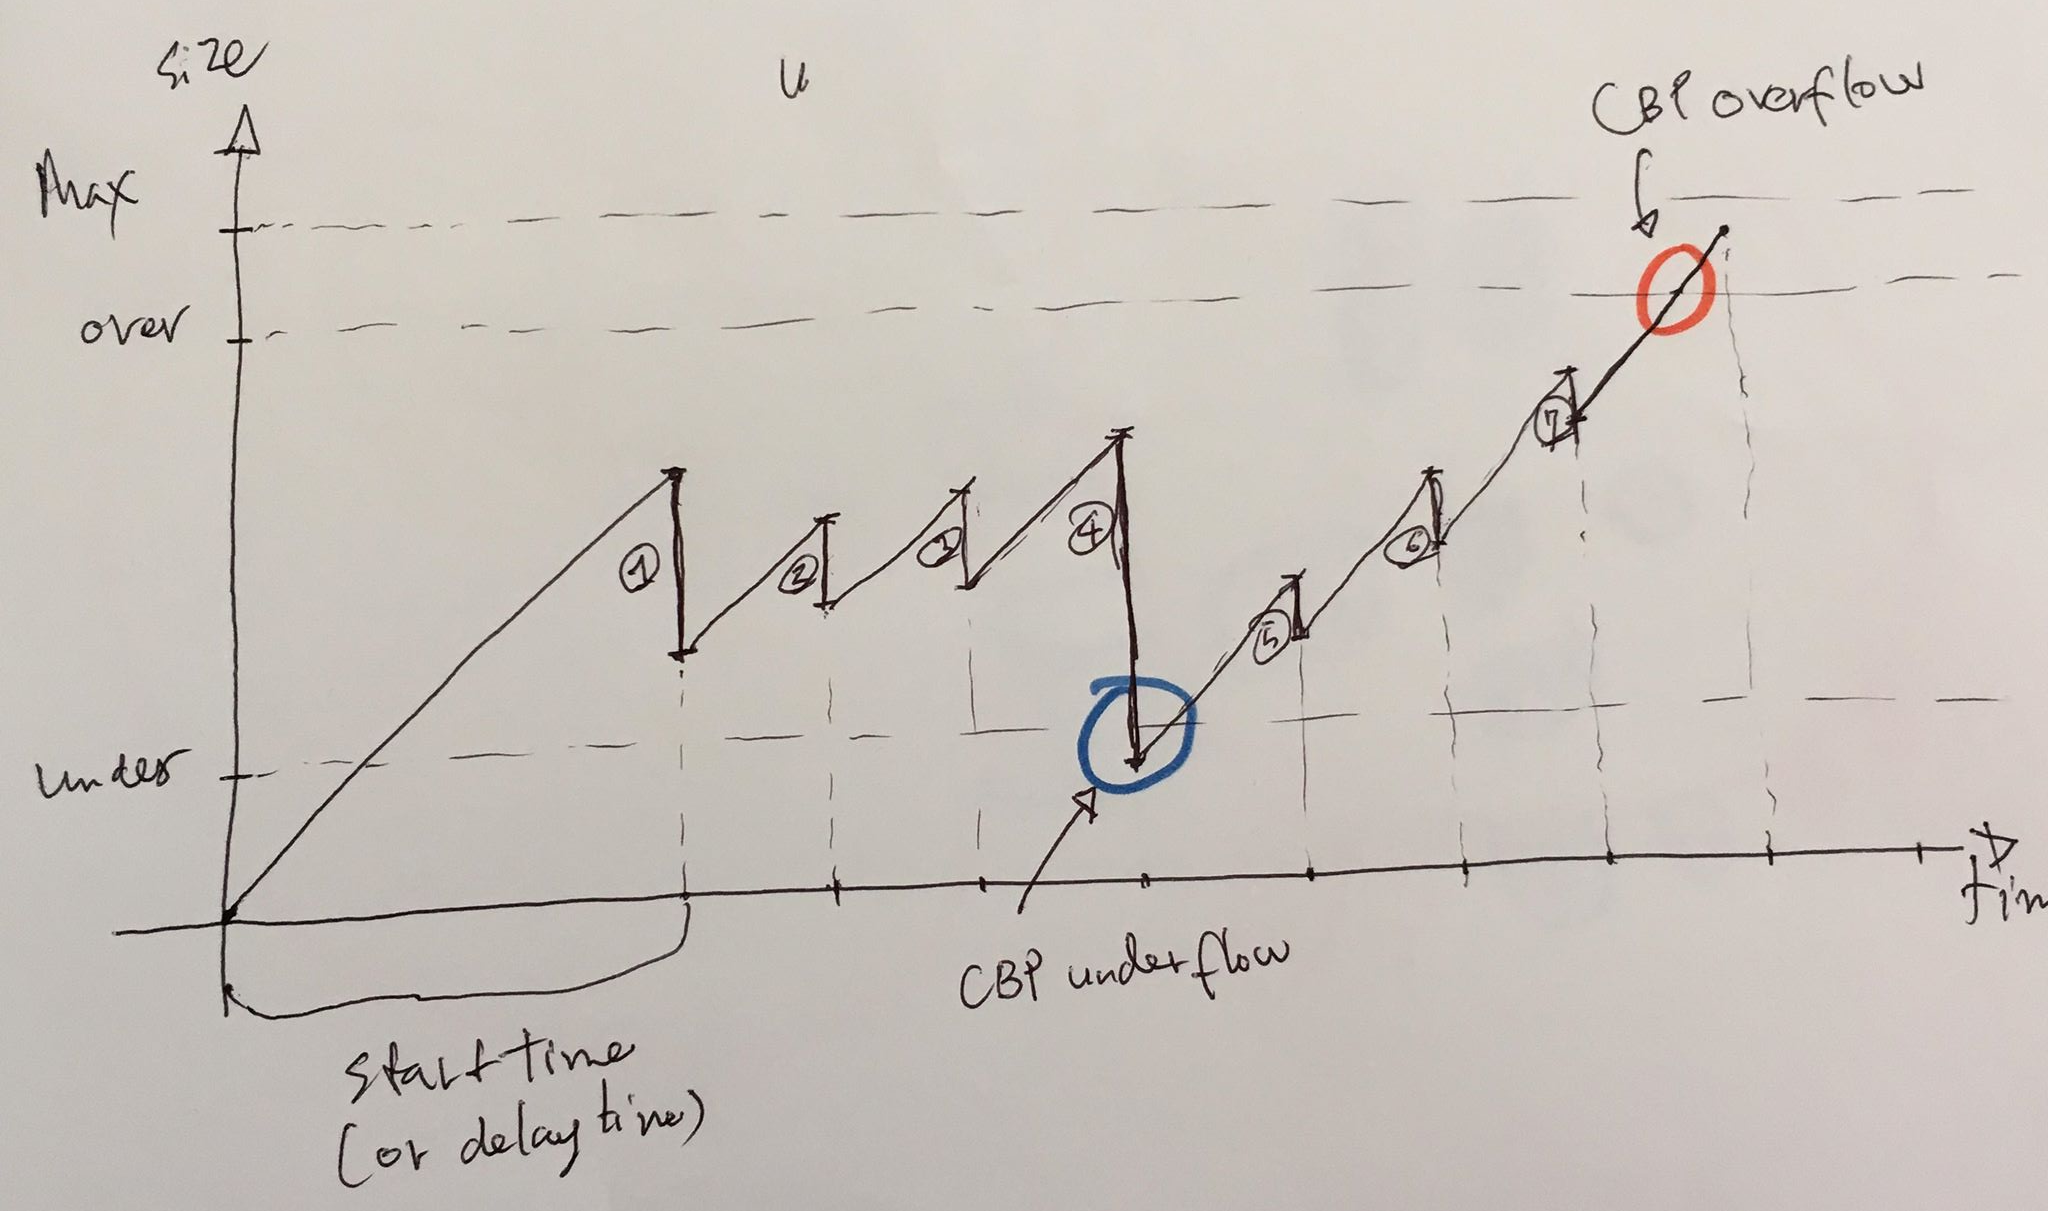 size
u
CBP overflow
Max
over
①
②
③
④
⑤
⑥
⑦
under
tim
CBP underflow
start time
(or delay time)